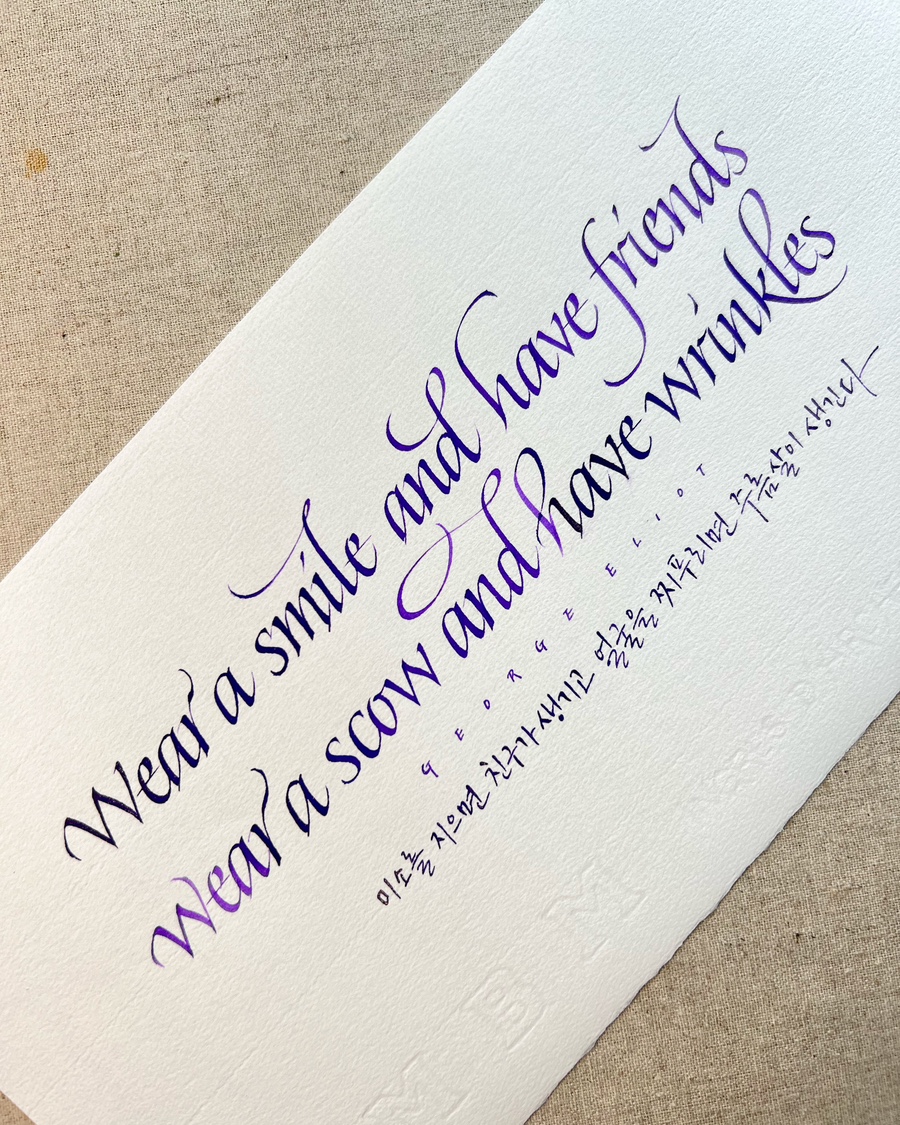 Wear a smile and have friends
Wear a scow and have wrinkles
GEORGE ELIOT
미소를 지으면 친구가 생기고 얼굴을 찌푸리면 주름살이 생긴다